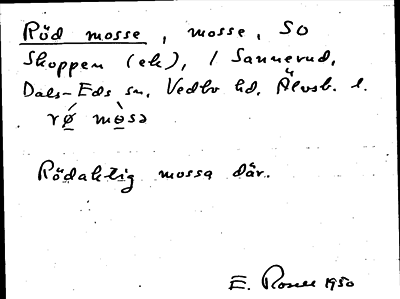 Röd mosse, mosse, SO
Skoppen (ek), i Sannerud,
Dals-Eds sn, Vedbo hd, Älvsb. l.
rǿ mo̱sə
Rödaktig mossa där.
E. Rosell 1950